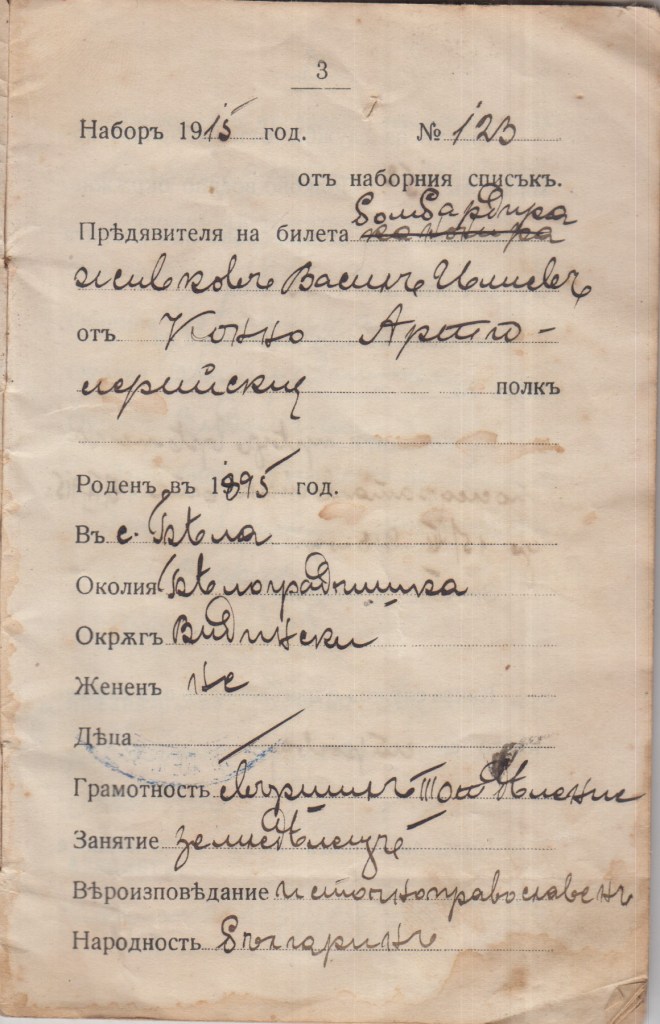 3
Наборъ 1915 год. № 123
от наборния списъкъ.
бомбардира
Прѣдявителя на билета канонира
Живковъ Василъ Илиевъ
отъ Конно Арти-
лерийский полкъ
Роденъ въ 1895 год.
Въ с. Бѣла
Околия Бѣлоградчишка
Окрѫгъ Видински
Жененъ не
Дѣца
Грамотность свършилъ III отдѣление
Занятие земледѣлецъ
Вѣроизповѣдание источноправославенъ
Народность Българинъ